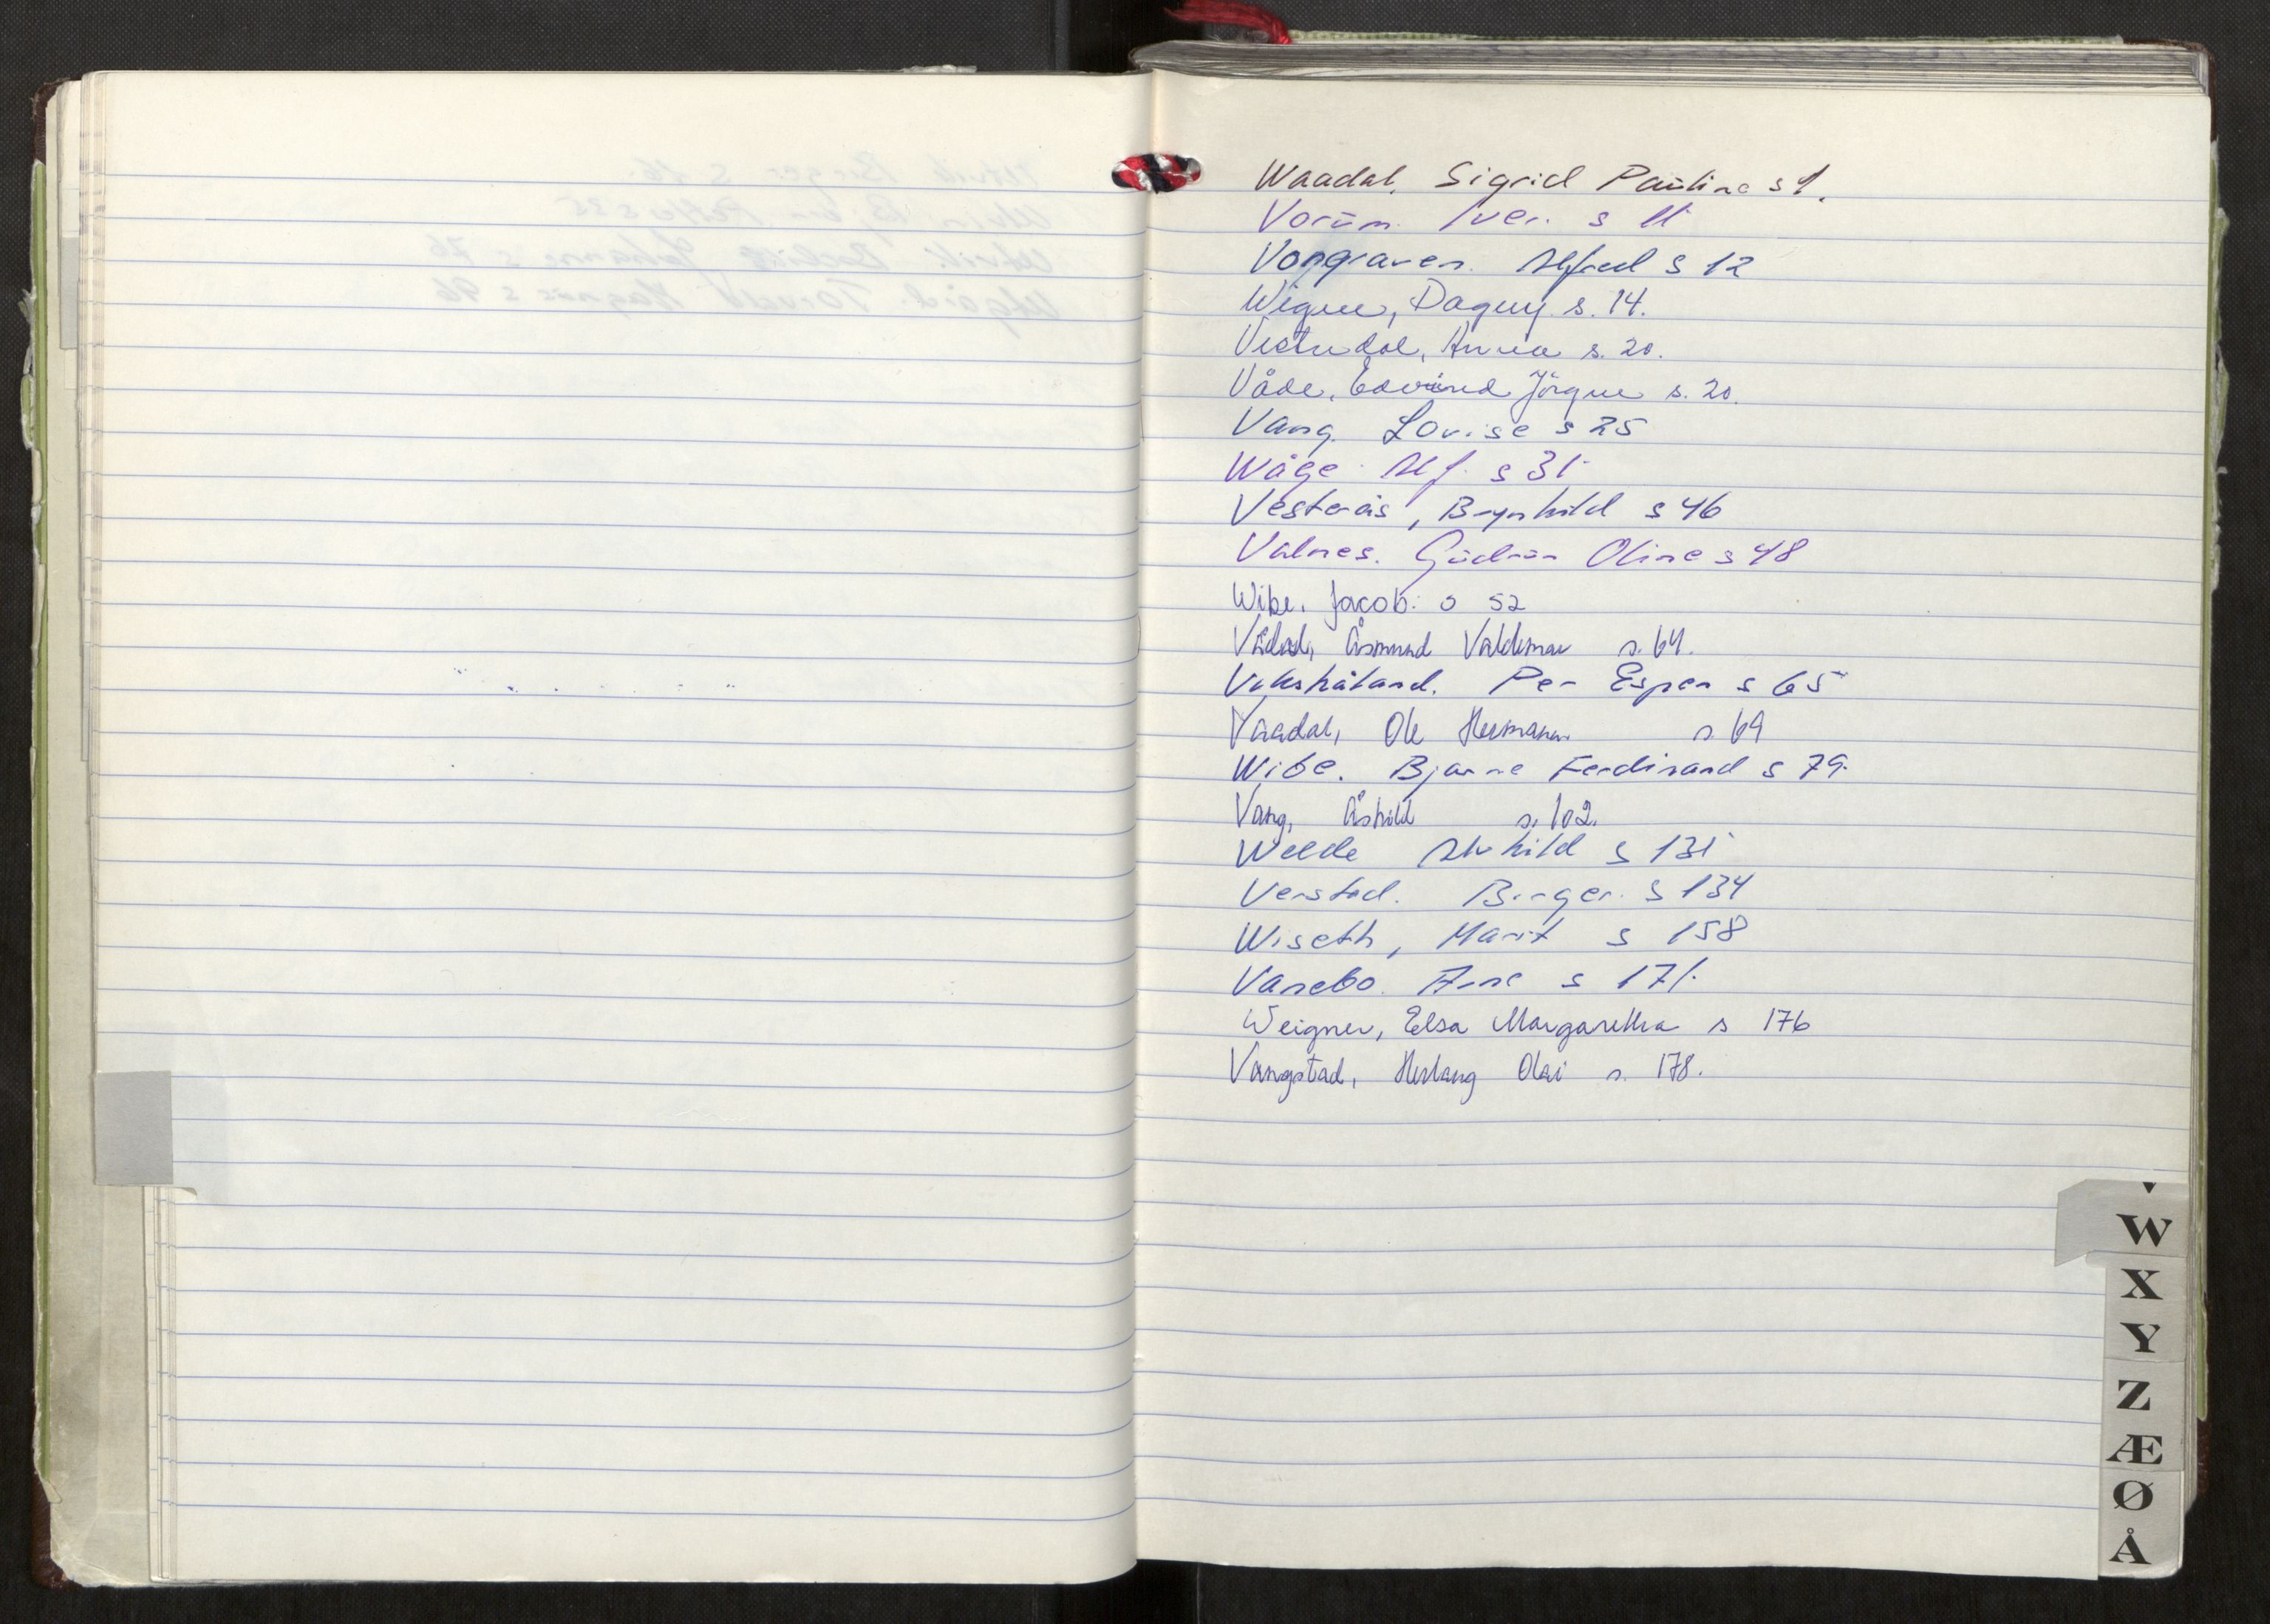 Waadal. Sigrid Pauline s 1.
Vorum. Iver. s 11
Vongraven. Alfred s 12
Wigen, Dagny. s. 14.
Vestredal, Anna s. 20.
Våde, Edvind Jörgen s. 20.
Vang. Lovise s 25
Wåge. Alf. s 31.
Vesterås, Brynhild s 46
Valnes. Gudrun Oline s 48
Wibe. Jacob. s 52
Åsmund Valdemar s. 64.
Per Espen s 65
Vaadal, Ole Hermann s. 69
Wibe. Bjarne Ferdinand s 79.
Vang, Åshild s. 102.
Welde Alvhild s 131
Verstad. Birger. s 134
Wiseth, Marit s 158
Vanebo. Arne s 171.
Weigner, Elsa Margaretha s 176
Vangstad, Herlaug Olai s. 178.
W
X
Y
Z
Æ
Ø
Å